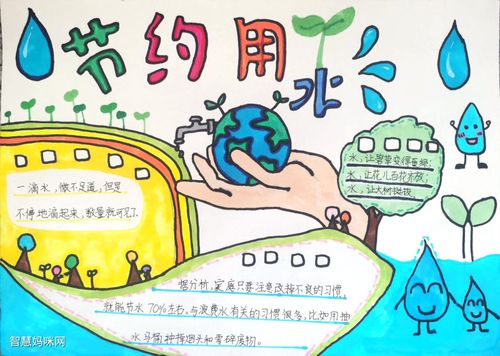 节约用水
一滴水，微不足道，但是
不停地滴起来，数量就可观了
水，让碧草变得苗绿；
水，让花儿百花齐放；
水，让大树挺拔
据分析，家庭只要注意改掉不良的习惯，
就能节水70%左右，与浪费水有关的习惯很多，比如用抽
水马桶冲掉烟头和零碎废物。
智慧妈咪网